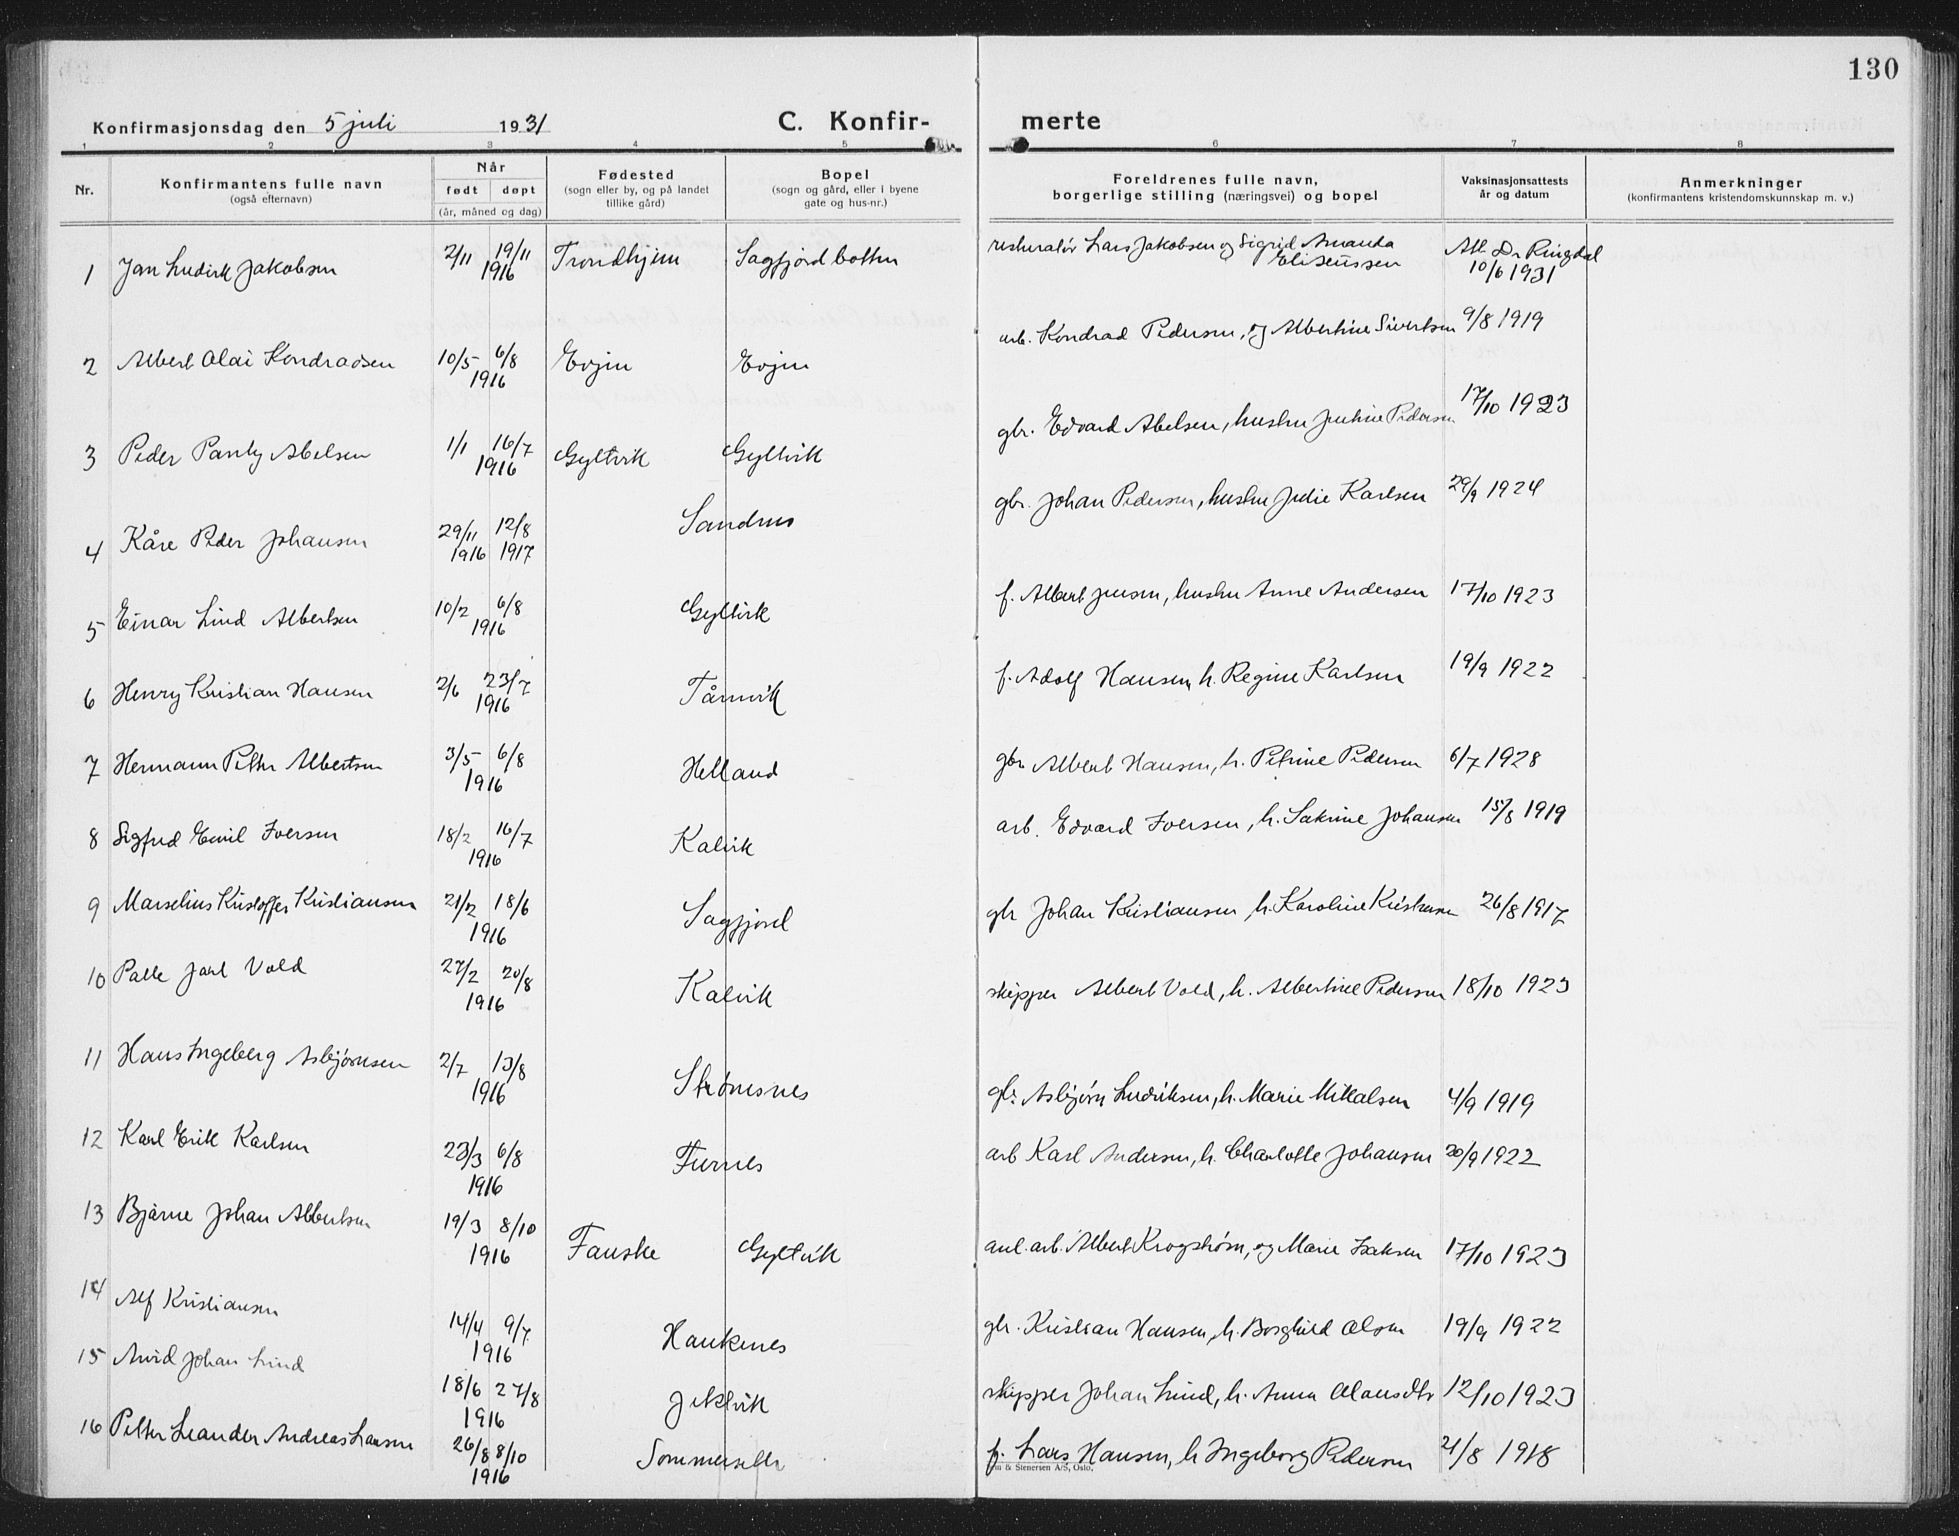 130
Konfirmasjonsdag den 5 juli 1931 C. Konfir- merte
1 2 3 4 5 6 7 8
Nr. Konfirmantens fulle navn (også efternavn) Når født døpt (år, måned og dag) Fødested (sogn eller by, og på landet tillike gård) Bopel (sogn og gård, eller i byene gate og hus-nr.) Foreldrenes fulle navn, borgerlige stilling (næringsvei) og bopel Vaksinasjonsattests år og datum Anmerkninger (konfirmantens kristendomskunnskap m. v.)
1 Jan Ludvik Jakobsen 2/11 19/11 1916 Trondhjem Sagfjordbotten Lars Jakobsen og Sigrid Amanda Eliseussen Att. Dr Ringdal 10/6 1931
2 Albert Olai Kondradsen 10/5 6/8 1916 Evjen Evjen arb. Kondrad Pedersen, og Albertine Sivertsen 9/8 1919
3 Peder Parely Abelsen 1/1 16/7 1916 Gyltvik Gyltvik gbr. Edvard Abelsen, hustru Pedersen 17/10 1923
4 Kåre Peder Johansen 29/11 1916 12/8 1917 Sandnes gbr. Johan Pedersen, hustru Julie Karlsen 29/9 1924
5 Einar Lind Albertsen 10/2 6/8 1916 Gyltvik f. Albert Jensen, hustru Anne Andersen 17/10 1923
6 Henry Kristian Hansen 2/6 23/7 1916 Tårnvik f. Adolf Hansen, h. Regine Karlsen 19/9 1922
7 Hermann Petter Albertsen 3/5 6/8 1916 Helland gbr Albert Hansen, h. Petrine Pedersen 6/7 1928
8 Sigfred Emil Iversen 18/2 16/7 1916 Kalvik arb. Edvard Iversen, h. Sakrine Johansen 15/8 1919
9 Marselius Kristoffer Kristiansen 21/2 18/6 1916 Sagfjord gbr Johan Kristiansen, h. Karoline Kristensen 26/8 1917
10 Palle Jarl Vold 27/2 20/8 1916 Kalvik skipper Albert Vold, h. Albertine Pedersen 18/10 1923
11 Hans Ingeberg Asbjørnsen 2/7 13/8 1916 Strømsnes gbr. Asbjørn Ludriksen, h. Marie Mikkalsen 4/9 1919
12 Karl Erik Karlsen 23/3 6/8 1916 Furnes arb Karl Andersen, h. Charlotte Johansen 20/9 1922
13 Bjarne Johan Albertsen 19/3 8/10 1916 Fauske Gyltvik anl. arb. Albert Krogstrøm, og Marie Isaksen 17/10 1923
14 Alf Kristiansen 14/4 9/7 1916 Haukenes gbr. Kristian Hansen, h. Borghild Olsen 19/9 1922
15 Arvid Johan Lind 18/6 27/8 1916 Jektvik skipper Johan Lind, h. Anna Olausdtr 12/10 1923
16 Petter Leander Andreas Larsen 26/8 8/10 1916 Sommerseth f. Lars Hansen, h Ingeborg Pedersen 21/8 1918
& Stenersen A/S, Oslo.